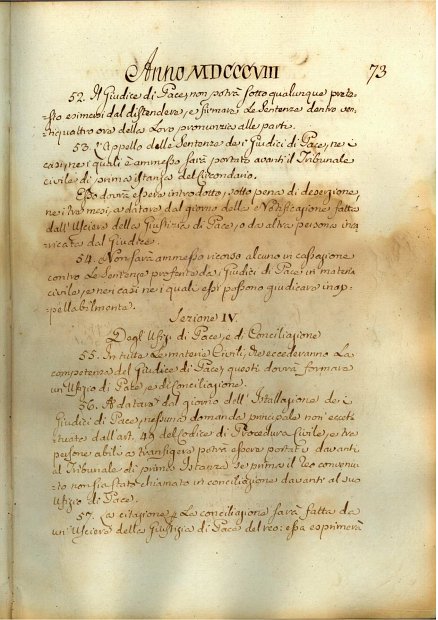 Anno MDCCCVIII 73
52. Il Giudice di Pace, non potrà sotto qualunque prete-
sto esimersi dal distendere, e firmare le Sentenze dentro ven-
tiquattro ore dalla loro pronunzia alle parti.
53. L'Appello delle Sentenze de i Giudici di Pace, ne i
casi, ne i quali è ammesso sarà portato avanti il Tribunale
civile di prima istanza del Circondario.
Esso dovrà essere introdotto, sotto pena di deserzione,
ne i tre mesi, a datare dal giorno della Notificazione fatta
dall'Usciere della Giustizia di Pace, o da altra persona inca-
ricata dal Giudice.
54. Non sarà ammesso ricorso alcuno in cassazione
contro le Sentenze proferite da i Giudici di Pace in materia
civile, e nei casi ne i quali essi possono giudicare inap-
pellabilmente.
Sezione IV.
Degli Ufizi di Pace, e di Conciliazione
55. In tutte le materie Civili, che eccederanno la
competenza del Giudice di Pace, questi dovrà formare
un Ufizio di Pace, e di Conciliazione.
56. A datare dal giorno dell'Istallazione de i
Giudici di Pace, nessuna domanda principale non eccet-
tuata dall'art. 49 del Codice di Procedura Civile, e tra
persone abili a transigere potrà essere portata davanti
al Tribunale di prima Istanza se prima il reo convenu-
to non sia stato chiamato in conciliazione davanti al suo
Ufizio di Pace.
57. La citazione La conciliazione sarà fatta da
un'Usciere della Giustizia di Pace del reo: essa esprimerà